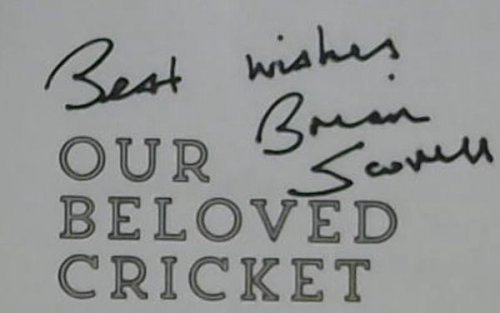 Best wishes
Brian
Scovell
OUR
BELOVED
CRICKET